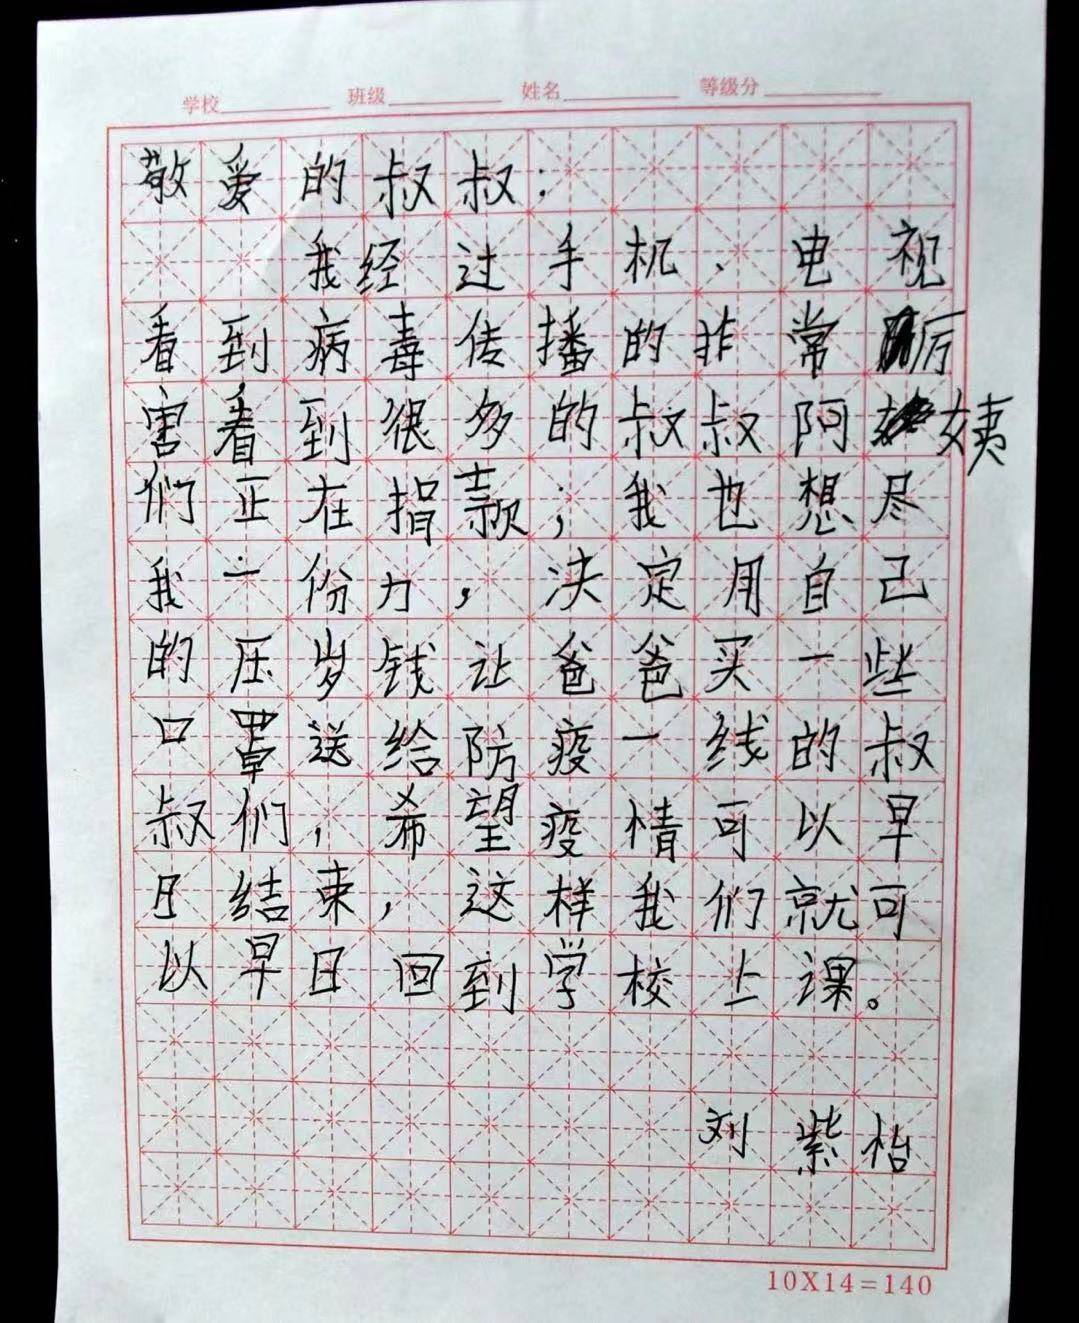 学校 班级 姓名 等级分
敬爱的叔叔：
我经过手机、电视
看到病毒传播的非常厉
害看到很多的叔叔阿姨
们正在捐款；我也想尽
我一份力，决定用自己
的压岁钱让爸爸买一些
口罩送给防疫一线的叔
叔们，希望疫情可以早
日结束，这样我们就可
以早日回到学校上课。
刘紫怡
10X14=140